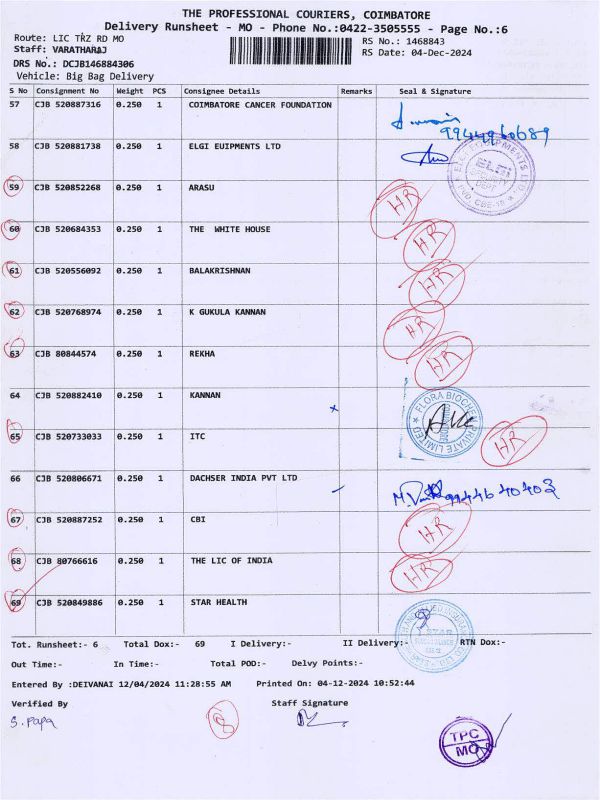 THE PROFESSIONAL COURIERS, COIMBATORE
Delivery Runsheet - MO - Phone No.:0422-3505555 - Page No.:6
Route: LIC TRZ RD MO
RS No.: 1468843
Staff: VARATHARAJ
RS Date: 04-Dec-2024
DRS No.: DCJB146884306
Vehicle: Big Bag Delivery
S No Consignment No Weight PCS Consignee Details Remarks Seal & Signature
57 CJB 520887316 0.250 1 COIMBATORE CANCER FOUNDATION
9944960689
58 CJB 520881738 0.250 1 ELGI EUIPMENTS LTD
ELGI EQUIPMENTS LTD. ELGI SECURITY DEPT PVD. CBE-15
59 CJB 520852268 0.250 1 ARASU HR
60 CJB 520684353 0.250 1 THE WHITE HOUSE HR
61 CJB 520556092 0.250 1 BALAKRISHNAN HR
62 CJB 520768974 0.250 1 K GUKULA KANNAN HR
63 CJB 80844574 0.250 1 REKHA HR
64 CJB 520882410 0.250 1 KANNAN x
FLORA BIOCHEM PRIVATE LIMITED
65 CJB 520733033 0.250 1 ITC HR
66 CJB 520806671 0.250 1 DACHSER INDIA PVT LTD
67 CJB 520887252 0.250 1 CBI HR
68 CJB 80766616 0.250 1 THE LIC OF INDIA HR
69 CJB 520849886 0.250 1 STAR HEALTH
STAR
Tot. Runsheet:- 6 Total Dox:- 69 I Delivery:- II Delivery:- RTN Dox:-
Out Time:- In Time:- Total POD:- Delvy Points:-
Entered By :DEIVANAI 12/04/2024 11:28:55 AM Printed On: 04-12-2024 10:52:44
Verified By Staff Signature
S. Papa
8
TPC
MO